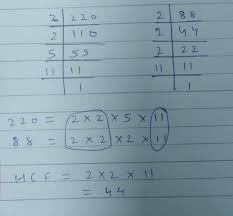 2 | 220    2 | 88
2 | 110    2 | 44
5 | 55    2 | 22
11 | 11    11 | 11
1    1
220 = 2 × 2 × 5 × 11
88 = 2 × 2 × 2 × 11
HCF = 2 × 2 × 11
= 44